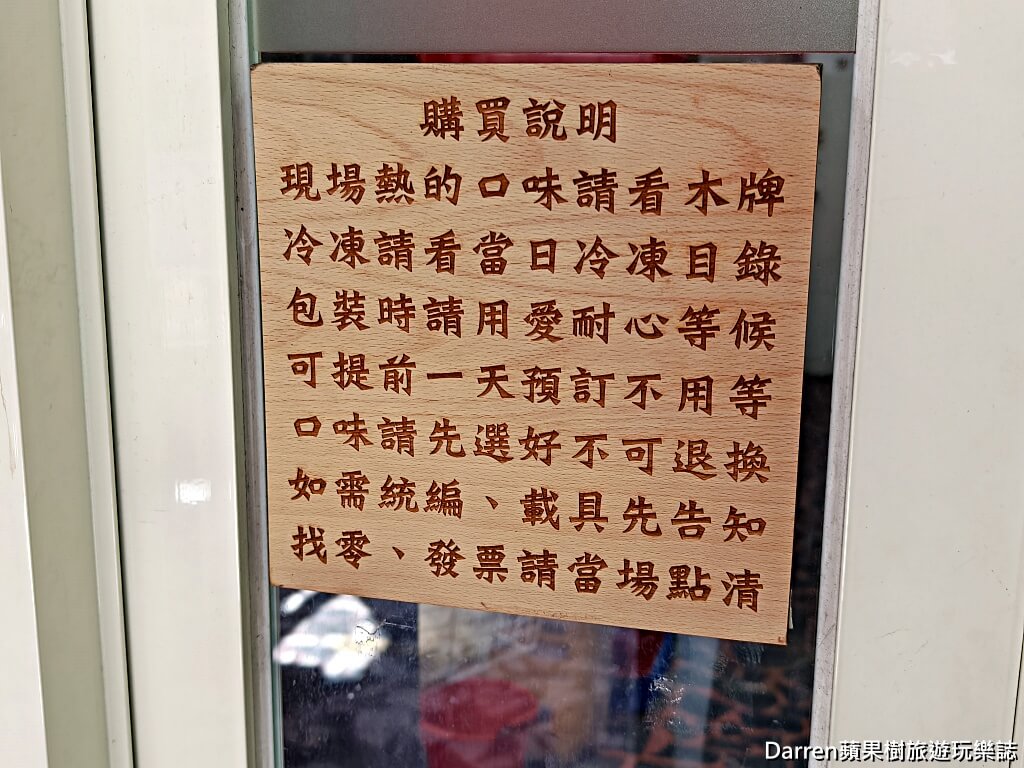 購買說明
現場熱的口味請看木牌
冷凍請看當日冷凍目錄
包裝時請用愛耐心等候
可提前一天預訂不用等
口味請先選好不可退換
如需統編、載具先告知
找零、發票請當場點清
Darren蘋果樹旅遊玩樂誌